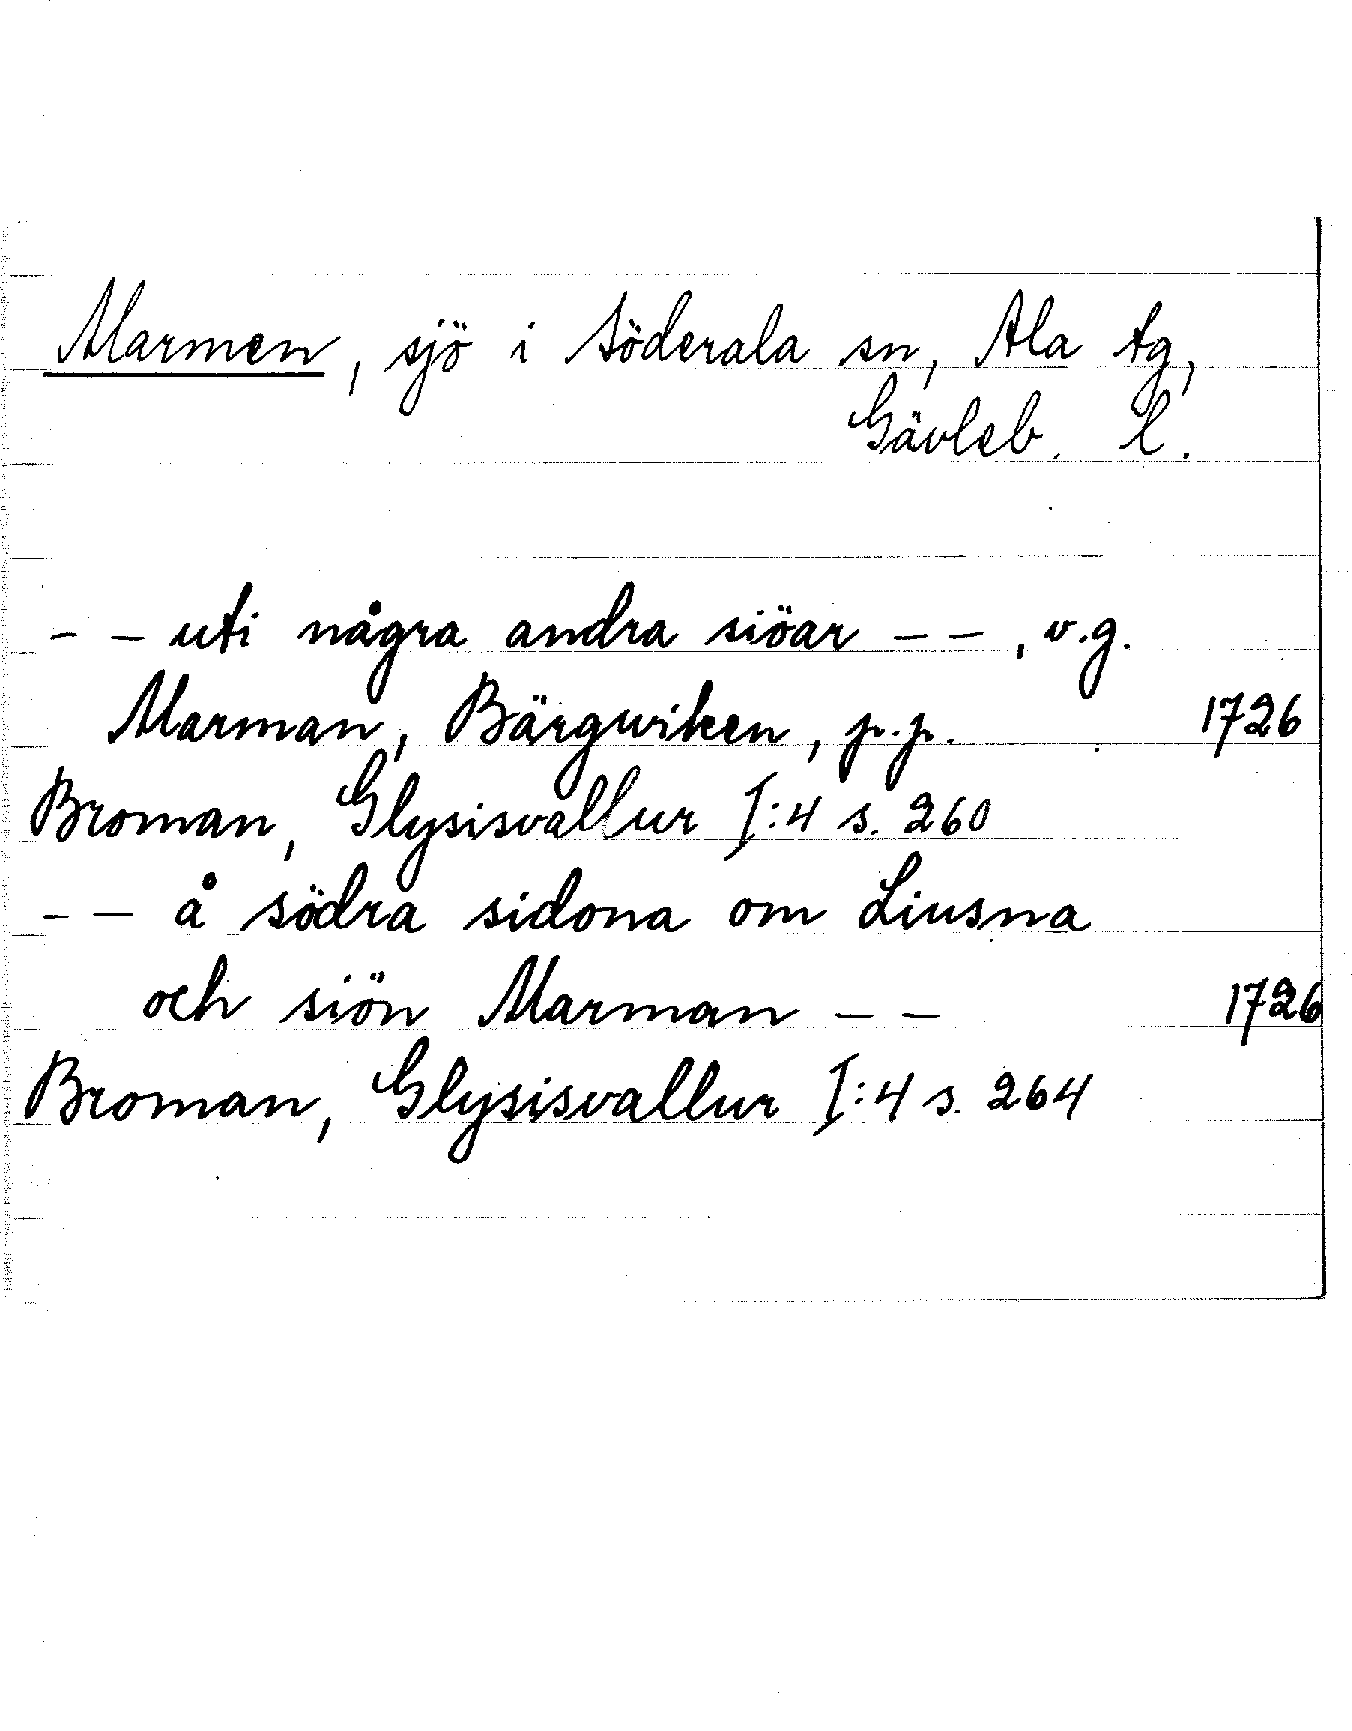 Marmen, sjö i Söderala sn, Ala tg,
Gävleb. l.
- - uti några andra siöar - -, v.g.
Marman, Bärgwiken, p.p. 1726
Broman, Glysisvallur I:4 s. 260
- - å södra sidona om Liusna
och siön Marman - - 1726
Broman, Glysisvallur I:4 s. 264